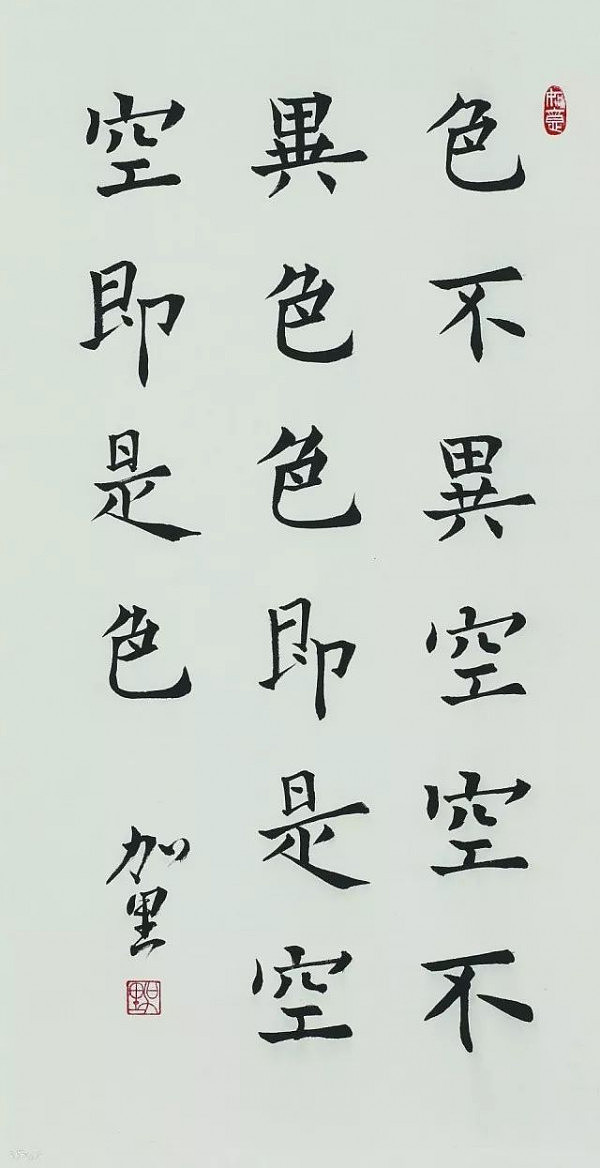 色不異空空不
異色色即是空
空即是色
加里